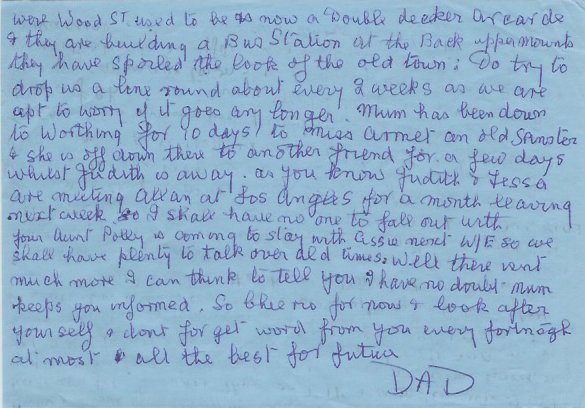 were Wood St used to be is now a Double decker Arcade
& they are building a Bus Station at the Back uppermounts
they have spoiled the look of the old town: Do try to
drop us a line round about every 2 weeks as we are
apt to worry if it goes any longer. Mum has been down
to Worthing for 10 days to Miss Armet an old Spinster
& she is off down there to another friend for a few days
whilst Judith is away. as you know Judith & Tessa
are meeting Allan at Los Angles for a month leaving
next week so I shall have no one to fall out with
your Aunt Polly is coming to stay with Cissie next W/E so we
shall have plenty to talk over old times: Well there isnt
much more I can think to tell you I have no doubt mum
keeps you informed. So Chee rio for now & look after
yourself & dont for get word from you every fortnigh
at most & all the best for futur
DAD